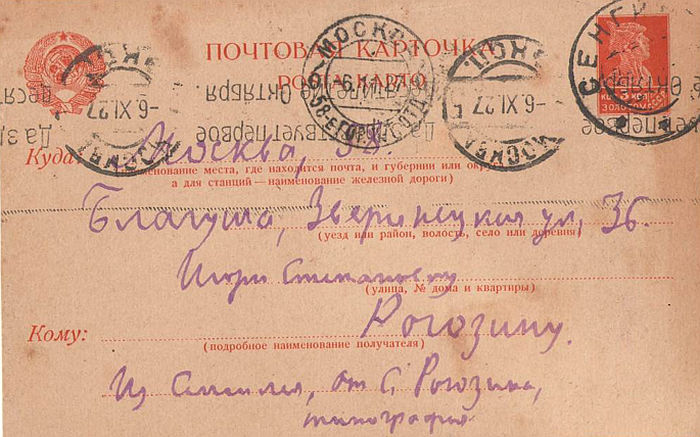 ПОЧТОВАЯ КАРТОЧКА
МОСКВА
СЕНГИ
-6.XI.27
-6.XI.27
МОСКВА
МОСКВА
Октября
Да здравствует первое
Куда: Москва, 38.
(наименование места, где находится почта, и губернии или округа
а для станций—наименование железной дороги)
Благуша, Зверинецкая ул, 36.
(уезд или район, волость, село или деревня)
Игорю Степановичу
(улица, № дома и квартиры)
Кому: Рогозину.
(подробное наименование получателя)
Из Сенгилея, от С. Рогозина,
типография